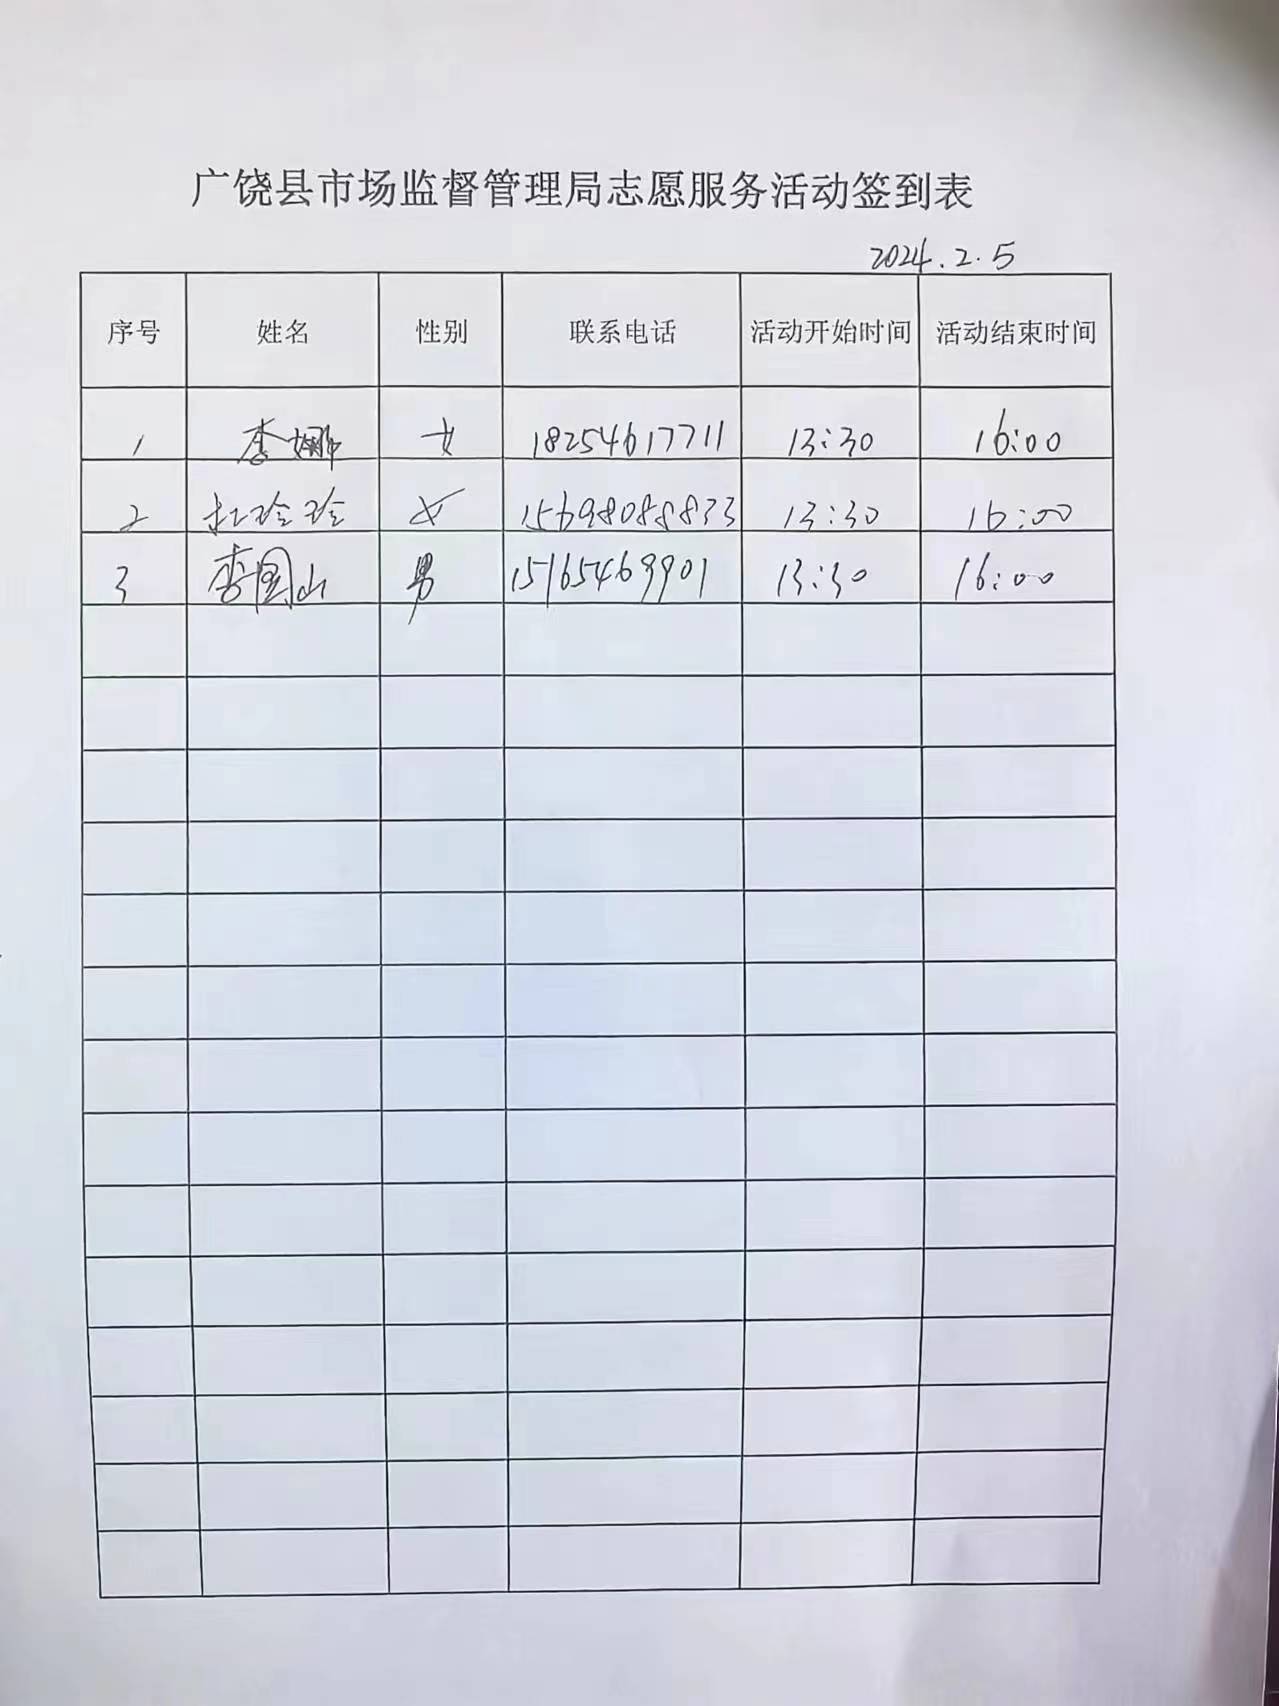 广饶县市场监督管理局志愿服务活动签到表
2024.2.5
序号 姓名 性别 联系电话 活动开始时间 活动结束时间
1 李娜 女 18254617711 13:30 16:00
2 杜玲玲 女 15698088833 13:30 16:00
3 李国山 男 15165469901 13:30 16:00